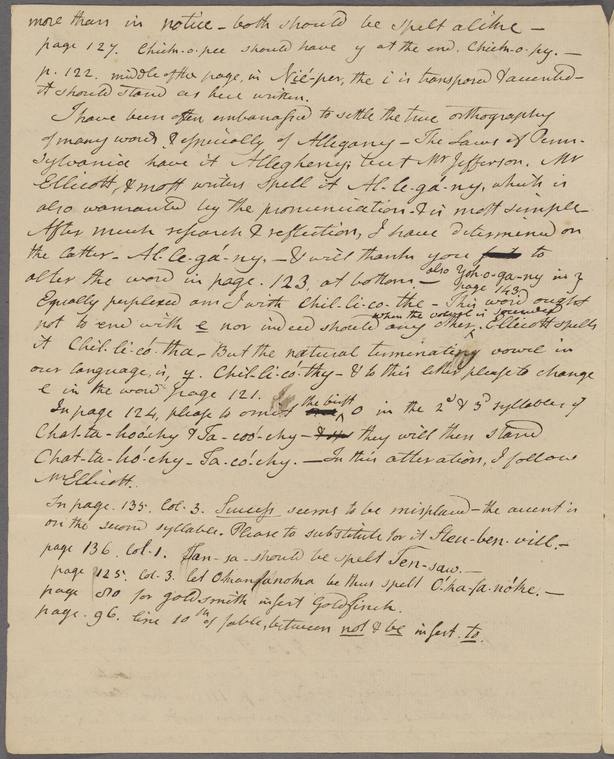 more than in notice - both should be spelt alike -
page 127. Chick-o-pee should have y at the end. Chick-o-py. -
p. 122. middle of the page, in Nié-per, the i is transposed & accented -
it should stand as here written.
I have been often embarrassed to settle the true orthography
of many words, & especially of Allegany - The Laws of Penn-
sylvania have it Allegheny; but Mr Jefferson, Mr
Ellicott, & most writers spell it Al-le-gá-ny, which is
also warranted by the pronunciation & is most simple
After much research & reflection, I have determined on
the latter - Al-le-gá-ny. - & will thank you to
alter the word in page 123, at bottom. - also Yoh-o-ga-ny in
page 143
Equally perplexed am I with Chil-li-co-the - This word ought
not to end with e nor indeed should any other, when the vowel is sounded. Ellicott spells
it Chil-li-có-tha - But the natural terminating vowel in
our language, is, y. Chil-li-có-thy - & to this letter please to change
e in the word page 121.
In page 124, please to omit the first o in the 2d & 3d syllables of
Chat-ta-hoó-chy & Ta-coó-chy - they will then stand
Chat-ta-hó-chy - Ta-có-chy. - In this alteration, I follow
Mr Ellicott.
In page 135. Col. 3. seems to be misplaced - the accent is
on the second syllable. Please to substitute for it Steu-ben-vill. -
page 136. Col. 1. Tan-sa - should be spelt Ten-saw. -
page 125. Col. 3. let Okanfánoka be thus spelt O'ka-fa-nó-ke. -
page 80 for goldsmith insert Goldfinch.
page. 96. line 10th of fable, between not & be insert to.